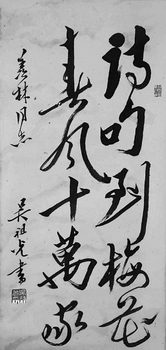 詩句到梅花
春风十萬家
林同志
吴祖光書